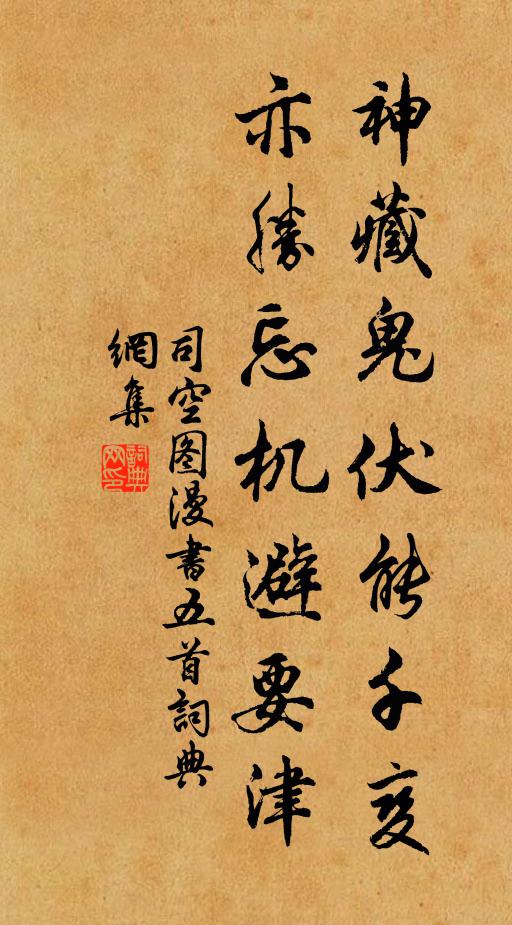 神藏鬼伏能千变
亦勝忘机避要津
司空图漫書五首詞典
網集
詞典网印